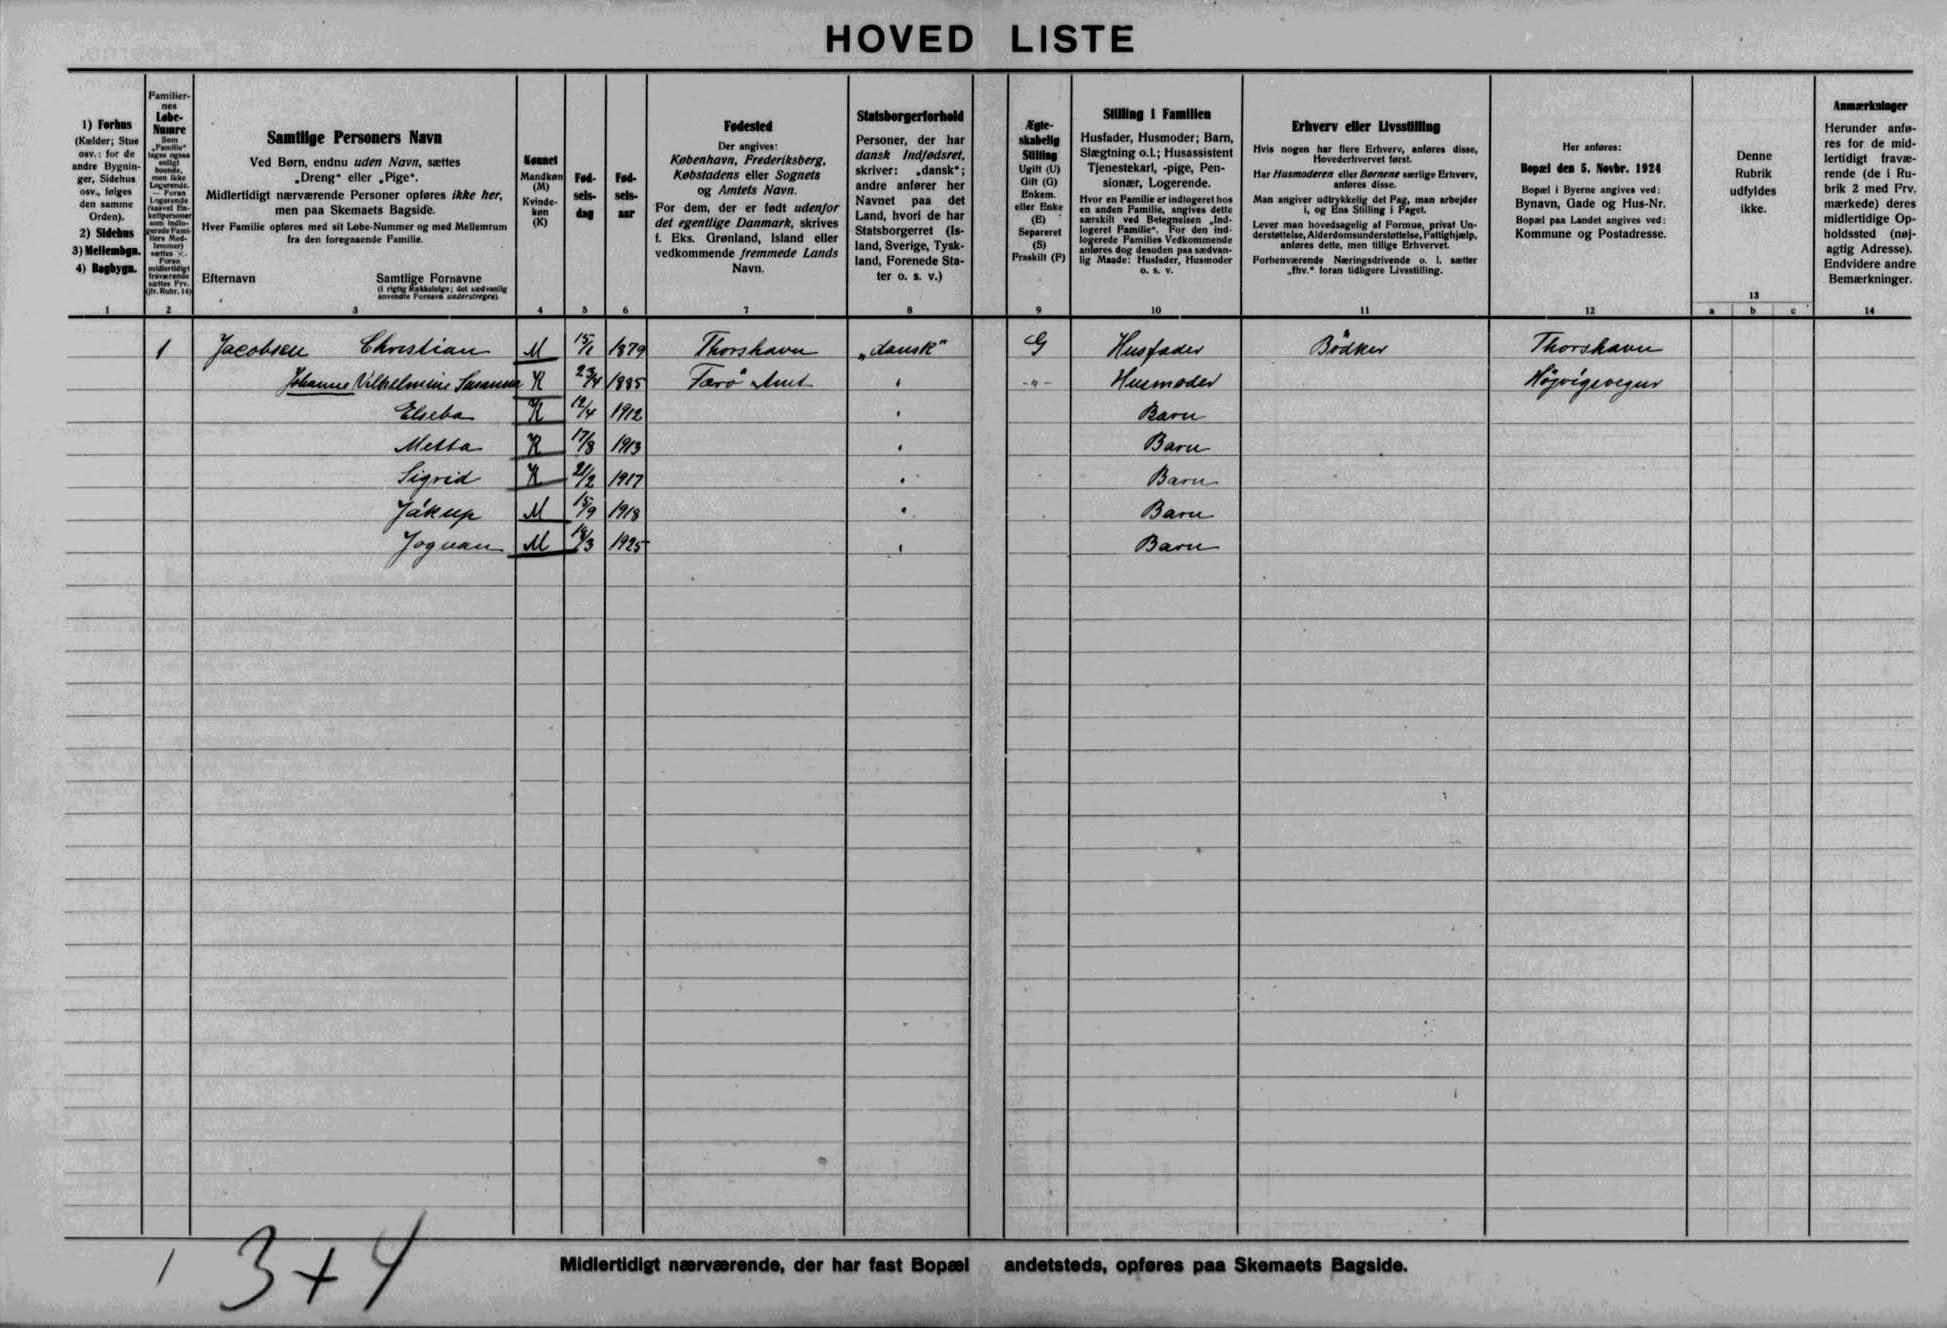 HOVED LISTE
1) Forhus
(Kælder; Stue
osv.: for de
andre Bygnin-
ger, Sidehus
osv., følges
den samme
Orden).
2) Sidehus
3) Mellembgn.
4) Bagbygn.
1
Familier-
nes
Løbe-
Numre
Som
„Familie“
tages ogsaa
enligt
boende,
men ikke
Logerende.
— Foran
Logerende
(saavel En-
keltpersoner
som indlo-
gerede Fami-
liers Med-
lemmer)
sættes ×.
Foran
midlertidigt
fraværende
sættes Frv.
(jfr. Rubr. 14)
2
Samtlige Personers Navn
Ved Børn, endnu uden Navn, sættes
„Dreng“ eller „Pige“.
Midlertidigt nærværende Personer opføres ikke her,
men paa Skemaets Bagside.
Hver Familie opføres med sit Løbe-Nummer og med Mellemrum
fra den foregaaende Familie.
Efternavn Samtlige Fornavne
(i rigtig Rækkefølge; det sædvanlig
anvendte Fornavn understreges).
3
Kønnet
Mandkøn
(M)
Kvinde-
køn
(K)
4
Fød-
sels-
dag
5
Fød-
sels-
aar
6
Fødested
Der angives:
København, Frederiksberg,
Købstadens eller Sognets
og Amtets Navn.
For dem, der er født udenfor
det egentlige Danmark, skrives
f. Eks. Grønland, Island eller
vedkommende fremmede Lands
Navn.
7
Statsborgerforhold
Personer, der har
dansk Indfødsret,
skriver: „dansk“;
andre anfører her
Navnet paa det
Land, hvori de har
Statsborgerret (Is-
land, Sverige, Tysk-
land, Forenede Sta-
ter o. s. v.)
8
Ægte-
skabelig
Stilling
Ugift (U)
Gift (G)
Enkem.
eller Enke
(E)
Separeret
(S)
Fraskilt (F)
9
Stilling i Familien
Husfader, Husmoder; Barn,
Slægtning o.l.; Husassistent
Tjenestekarl, -pige, Pen-
sionær, Logerende.
Hvor en Familie er indlogeret hos
en anden Familie, angives dette
særskilt ved Betegnelsen „Ind-
logeret Familie“. For den ind-
logerede Families Vedkommende
anføres dog desuden paa sædvan-
lig Maade: Husfader, Husmoder
o. s. v.
10
Erhverv eller Livsstilling
Hvis nogen har flere Erhverv, anføres disse,
Hovederhvervet først.
Har Husmoderen eller Børnene særlige Erhverv,
anføres disse.
Man angiver udtrykkelig det Fag, man arbejder
i, og Ens Stilling i Faget.
Lever man hovedsagelig af Formue, privat Un-
derstøttelse, Alderdomsunderstøttelse, Fattighjælp,
anføres dette, men tillige Erhvervet.
Forhenværende Næringsdrivende o. l. sætter
„fhv.“ foran tidligere Livsstilling.
11
Her anføres:
Bopæl den 5. Novbr. 1924
Bopæl i Byerne angives ved:
Bynavn, Gade og Hus-Nr.
Bopæl paa Landet angives ved:
Kommune og Postadresse.
12
Denne
Rubrik
udfyldes
ikke.
13
a b c
Anmærkninger
Herunder anfø-
res for de mid-
lertidigt fravæ-
rende (de i Ru-
brik 2 med Frv.
mærkede) deres
midlertidige Op-
holdssted (nøj-
agtig Adresse).
Endvidere andre
Bemærkninger.
14
1 Jacobsen Christian M 15/1 1879 Thorshavn „dansk“ G Husfader Bödker Thorshavn
Johanne Vilhelmine Susanna K 23/4 1885 Færö Amt " -"- Husmoder Högvigsvegur
Elseba K 12/4 1912 " Barn
Metta K 17/8 1913 " Barn
Sigrid K 21/2 1917 " Barn
Jákup M 15/9 1918 " Barn
Jognan M /3 1925 " Barn
Midlertidigt nærværende, der har fast Bopæl andetsteds, opføres paa Skemaets Bagside.
1 3+4